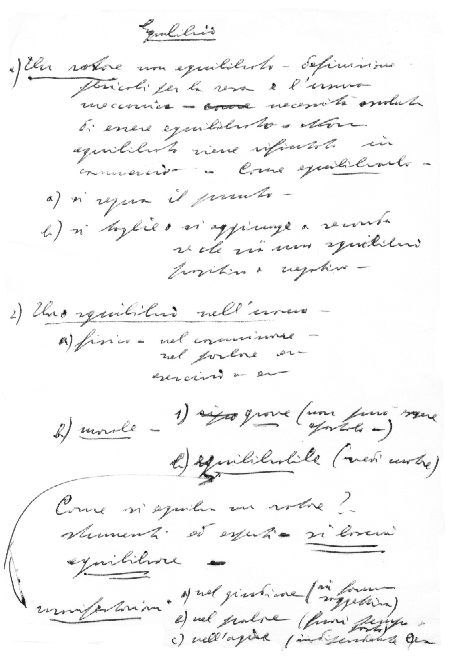 Equilibrio
1) Un rotore non equilibrato - definizione
pericoli per la resa e l'uomo
meccanico - necessità assoluta
di essere equilibrato - Non
equilibrato viene rifiutato in
commercio - Come equilibrarlo -
a) si segna il punto -
b) si toglie o si aggiunge a seconda
se c'è sia uno squilibrio
positivo o negativo -
2) Uno squilibrio nell'uomo -
a) fisico - nel camminare -
nel parlare
esercizio -
b) morale -
1) grave (non può essere
2) equilibrabile (vedi
Come si equilibra un rotore?
strumenti ed esperti - si lascia
equilibrare -
manifestazioni
a) nel giudicare (in forma
soggettiva)
b) nel parlare (fuori tempo
c) nell'agire (indipendente